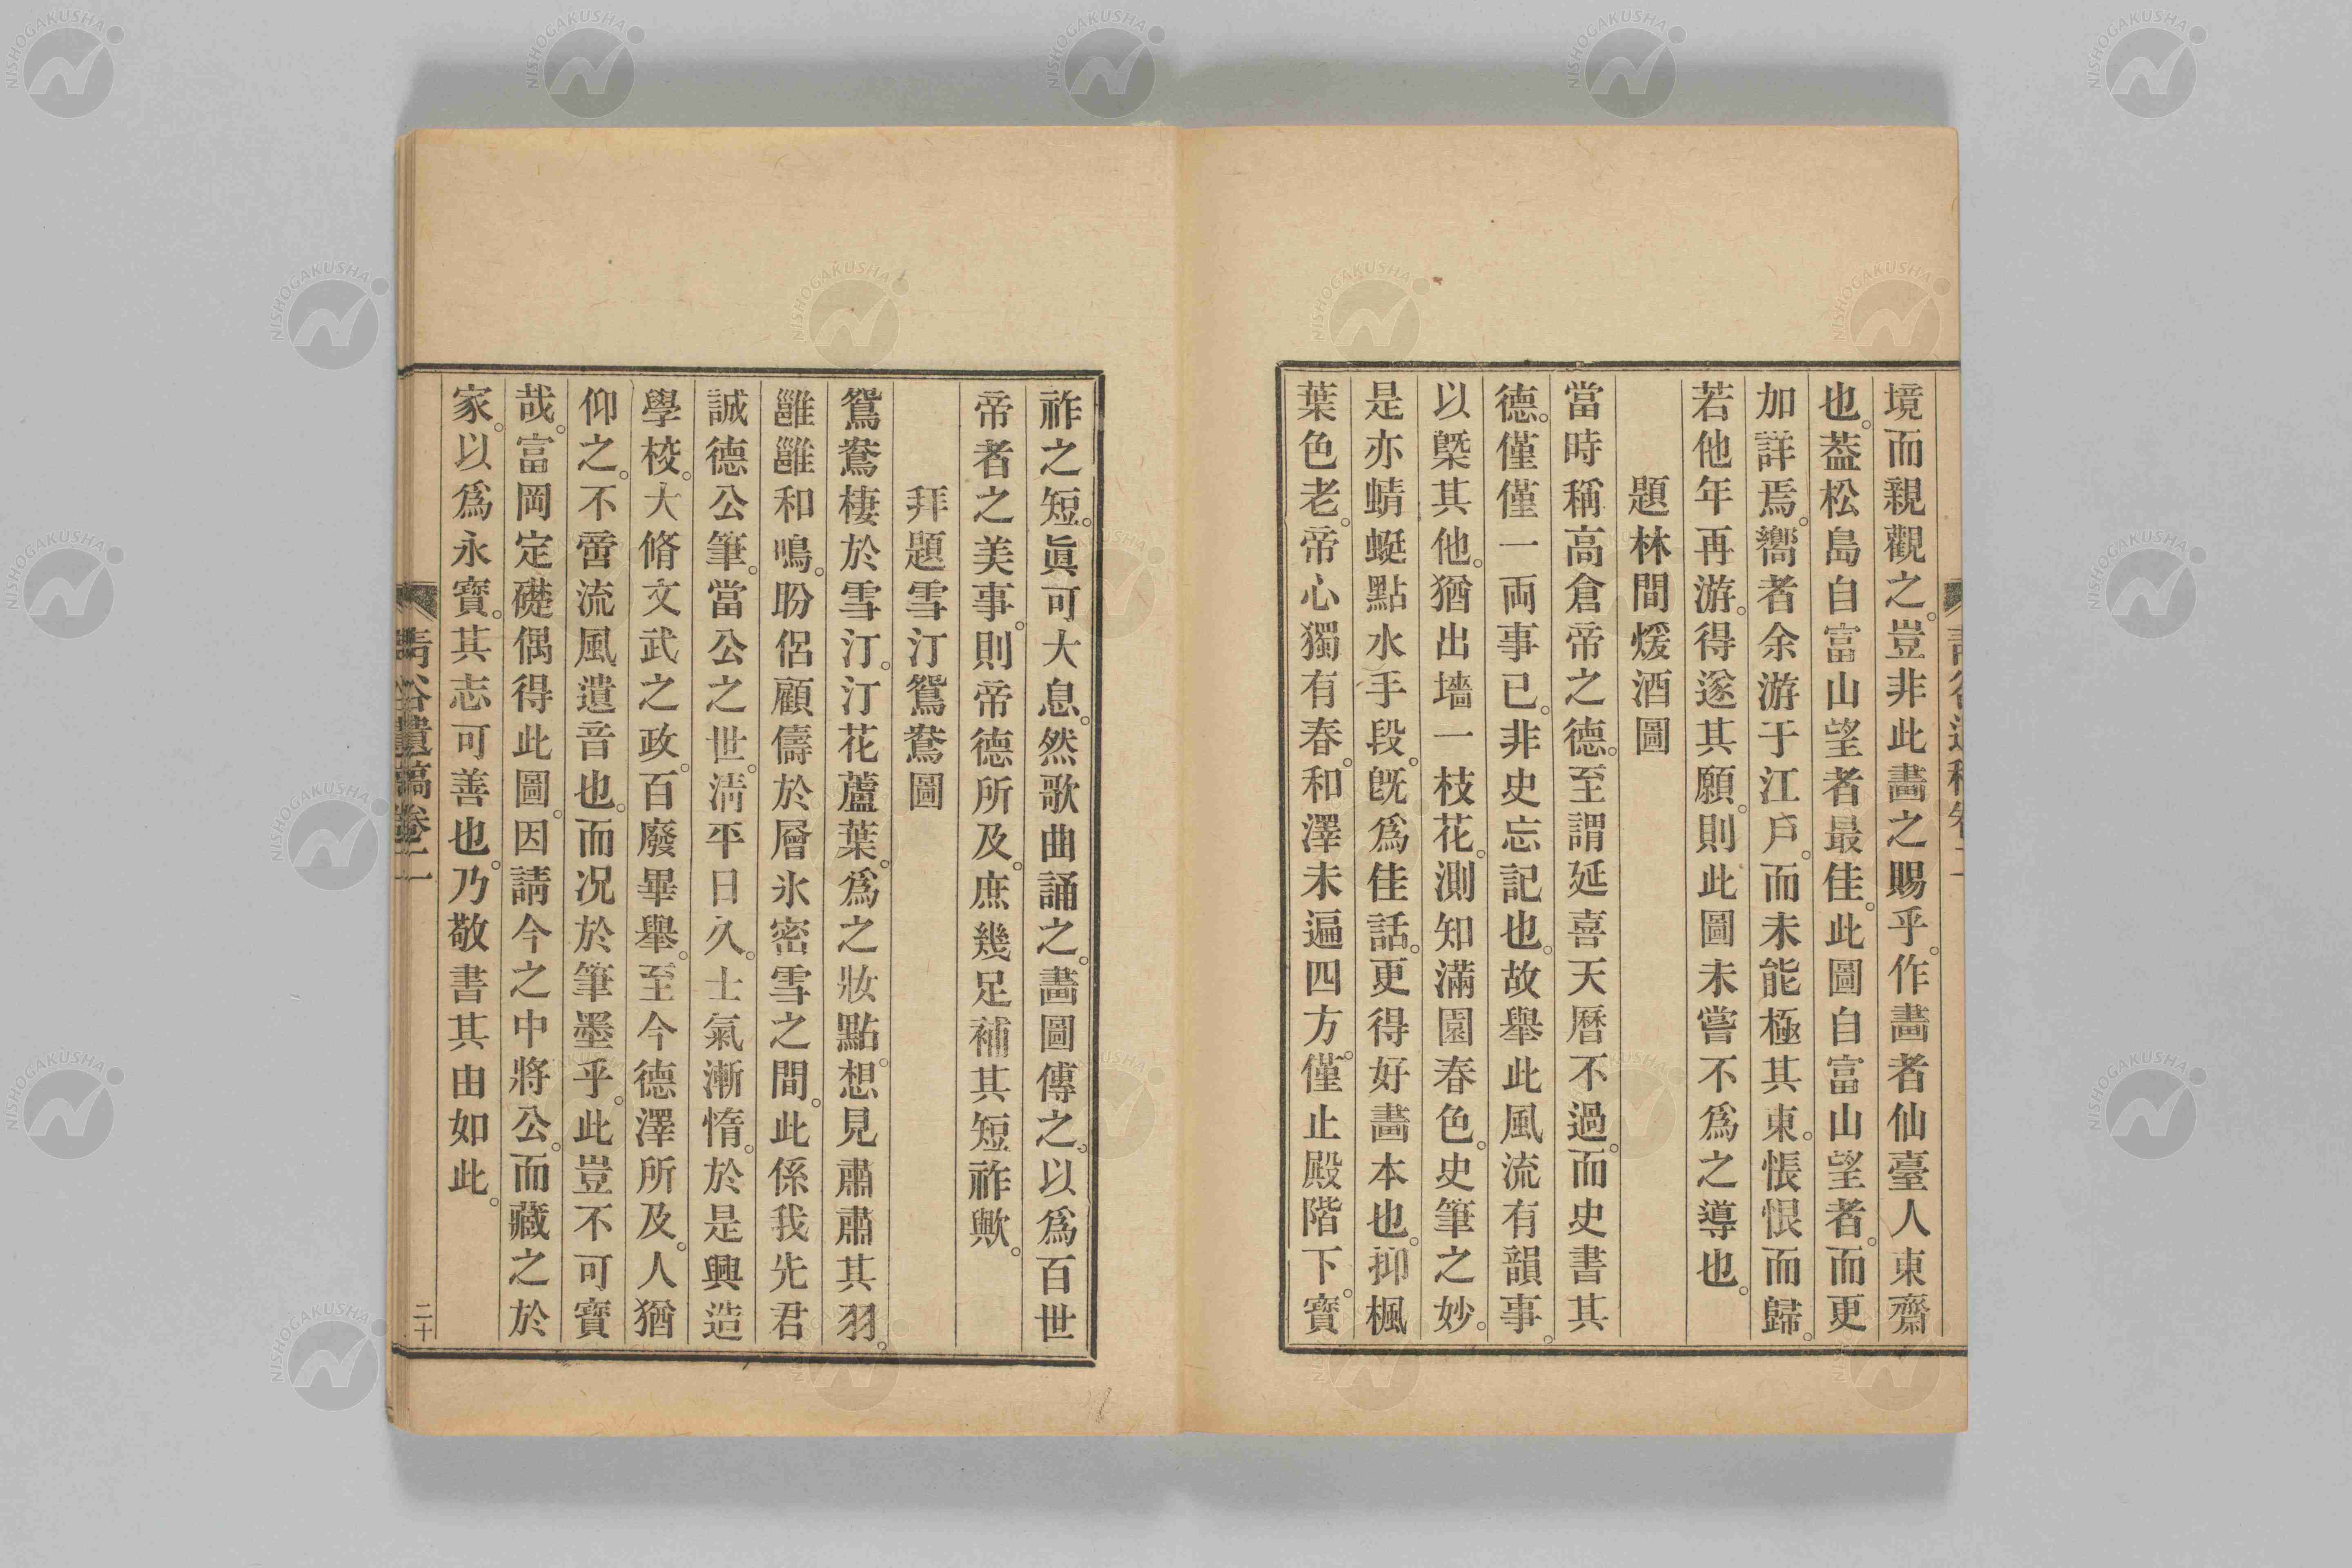 境而親觀之。豈非此畵之賜乎。作畵者仙臺人東齋
也。葢松島自富山望者最佳。此圖自富山望者。而更
加詳焉。嚮者余游于江戶。而未能極其東。悵恨而歸。
若他年再游。得遂其願。則此圖未嘗不爲之導也。
題林間煖酒圖
當時稱高倉帝之德。至謂延喜天曆不過。而史書其
德。僅僅一兩事已。非史忘記也。故舉此風流有韻事。
以槩其他。猶出墻一枝花。測知滿園春色。史筆之妙。
是亦蜻蜓點水手段。旣爲佳話。更得好畵本也。抑楓
葉色老。帝心獨有春。和澤未遍四方。僅止殿階下。寶
祚之短。眞可大息。然歌曲誦之。畵圖傳之。以爲百世
帝者之美事。則帝德所及。庶幾足補其短祚歟。
拜題雪汀鴛鴦圖
鴛鴦棲於雪汀。汀花蘆葉。爲之妝點。想見肅肅其羽。
雝雝和鳴。盼侶顧儔於層氷密雪之間。此係我先君
誠德公筆。當公之世。淸平日久。士氣漸惰。於是興造
學校。大脩文武之政。百廢畢舉。至今德澤所及。人猶
仰之。不啻流風遺音也。而况於筆墨乎。此豈不可寶
哉。富岡定礎偶得此圖。因請今之中將公。而藏之於
家。以爲永寶。其志可善也。乃敬書其由如此。
靑谷遺稿卷二
二十
NISHOGAKUSHA